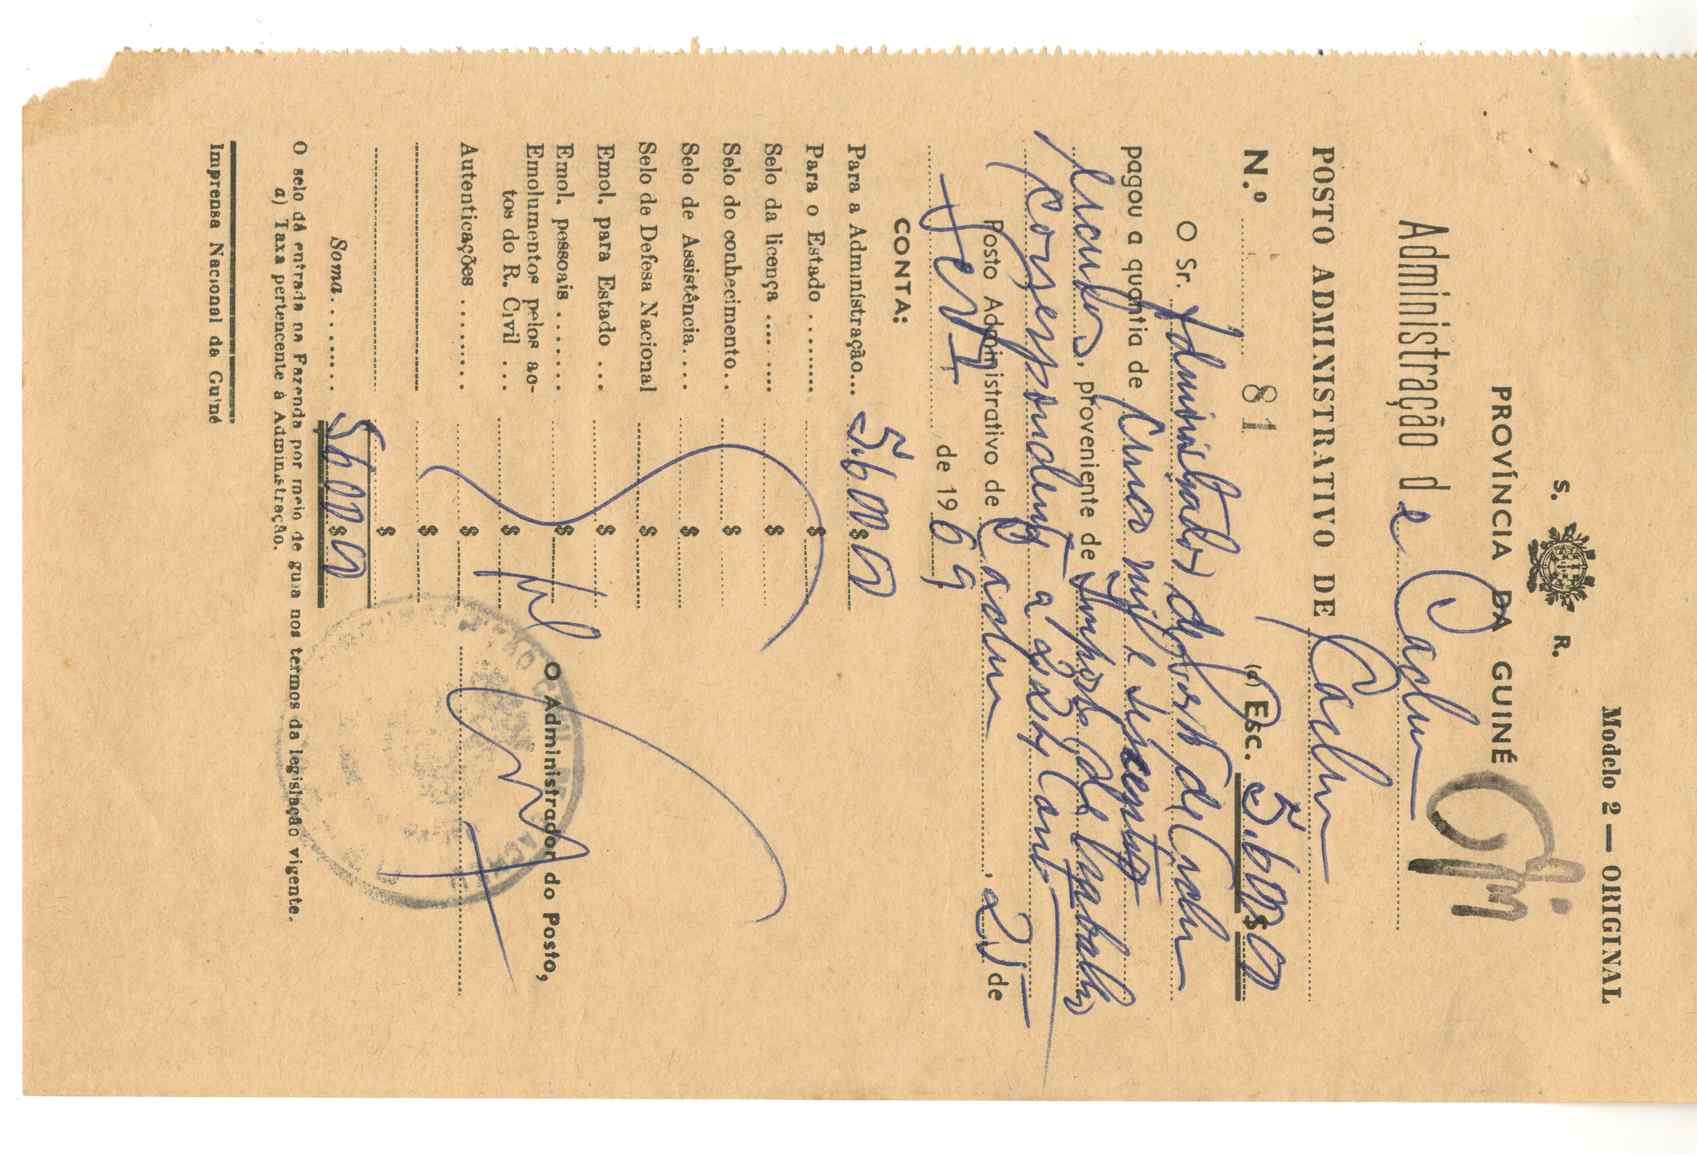 Modelo 2 — ORIGINAL
S. R.
PROVÍNCIA DA GUINÉ
Administração de Cacheu
POSTO ADMINISTRATIVO DE Cacheu
N.º 81 (a) Esc. 5.600$00
O Sr. Administrador do Posto de Cacheu
pagou a quantia de cinco mil e seiscentos
escudos, proveniente de Imposto de trabalho
correspondente a
Posto Administrativo de Cacheu, 25 de
de 1969
CONTA:
Para a Administração... 5.600$00
Para o Estado ......... $
Selo da licença ... .... $
Selo do conhecimento.. $
Selo de Assistência.... $
Selo de Defesa Nacional $
Emol. para Estado ... $
Emol. pessoais ....... $
Emolumentos pelos ac-
tos do R. Civil ... $
Autenticações ........ $
$
$
Soma........ 5.600$00
O Administrador do Posto,
O selo dá entrada na Fazenda por meio de guia nos termos da legislação vigente.
a) Taxa pertencente à Administração.
Imprensa Nacional da Guiné